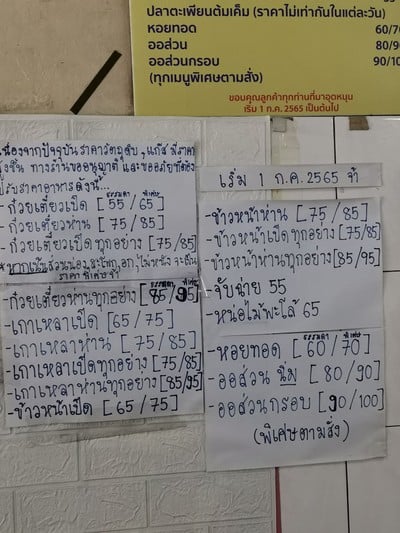 ปลาตะเพียนต้มเค็ม (ราคาไม่เท่ากันในแต่ละวัน)
หอยทอด 60/70
ออส่วน 80/90
ออส่วนกรอบ 90/100
(ทุกเมนูพิเศษตามสั่ง)
ขอบคุณลูกค้าทุกท่านที่มาอุดหนุน
เริ่ม 1 ก.ค. 2565 เป็นต้นไป
เนื่องจากปัจจุบันราคาวัตถุดิบ, แก๊ส มีราคา
สูงขึ้น ทางร้านขออนุญาติ และขออภัยที่ต้อง
ปรับราคาอาหารดังนี้...
ธรรมดา พิเศษ
- ก๋วยเตี๋ยวเป็ด [55/65]
- ก๋วยเตี๋ยวห่าน [75/85]
- ก๋วยเตี๋ยวเป็ดทุกอย่าง [75/85]
ราคาพิเศษจ้า
ธรรมดา พิเศษ
- ก๋วยเตี๋ยวห่านทุกอย่าง [85/95]
- เกาเหลาเป็ด [65/75]
- เกาเหลาห่าน [75/85]
- เกาเหลาเป็ดทุกอย่าง [75/85]
- เกาเหลาห่านทุกอย่าง [85/95]
- ข้าวหน้าเป็ด [65/75]
เริ่ม 1 ก.ค. 2565 จ้า
ธรรมดา พิเศษ
- ข้าวหน้าห่าน [75/85]
- ข้าวหน้าเป็ดทุกอย่าง [75/85]
- ข้าวหน้าห่านทุกอย่าง [85/95]
- จับฉ่าย 55
- หน่อไม้พะโล้ 65
ธรรมดา พิเศษ
- หอยทอด [60/70]
- ออส่วน นิ่ม [80/90]
- ออส่วนกรอบ [90/100]
(พิเศษตามสั่ง)